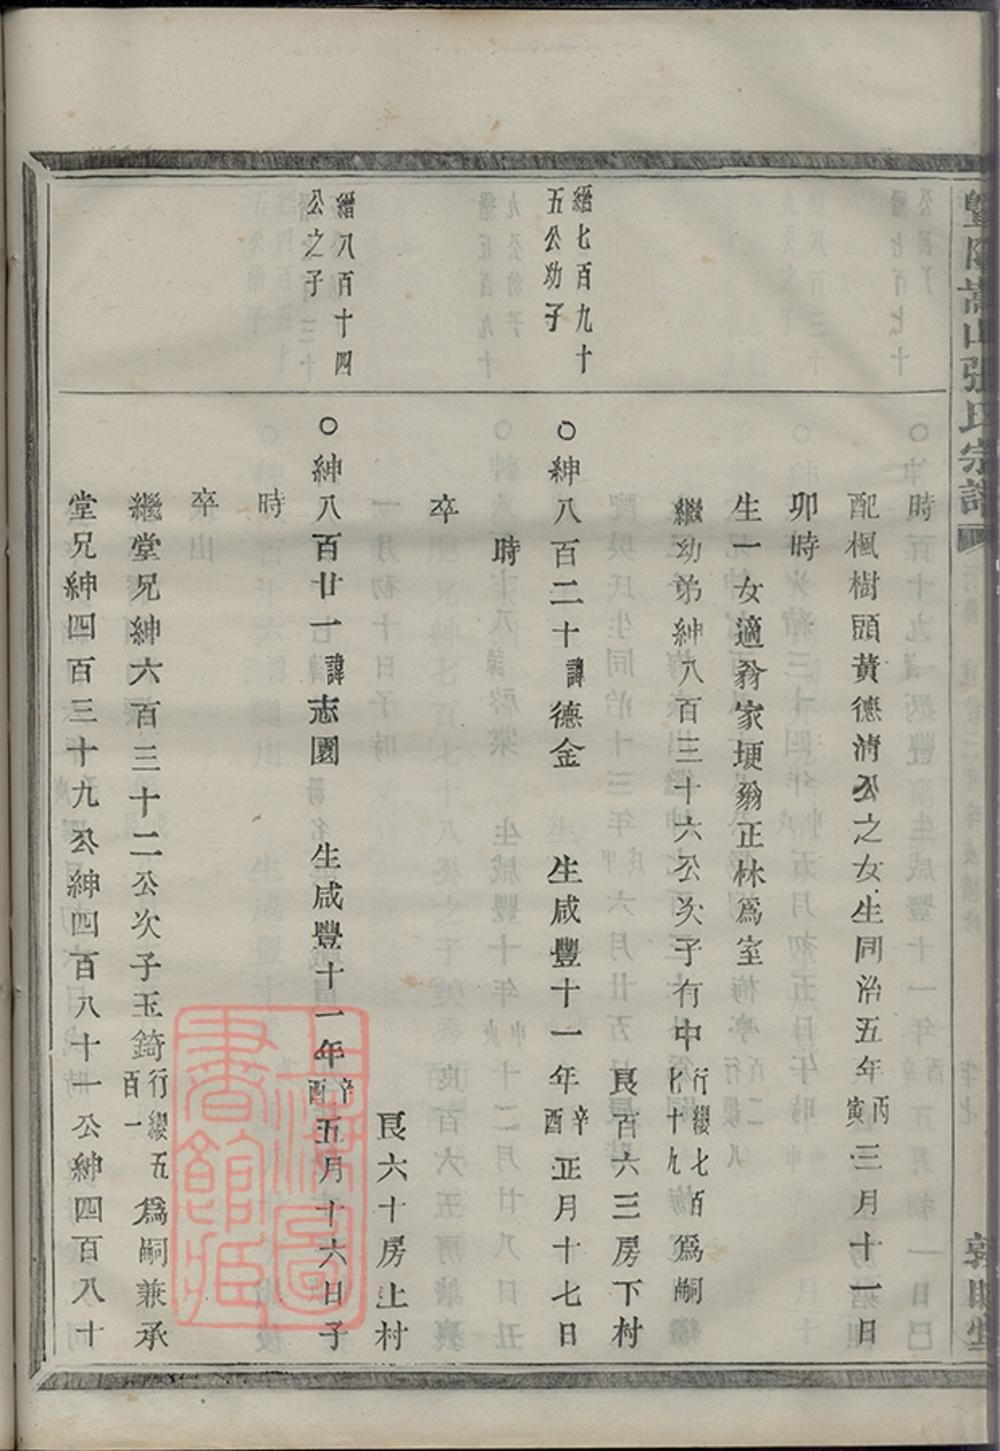 暨陽嵩山張氏宗譜
時
配楓樹頭黃德淸公之女生同治五年丙寅三月十一日
卯時
生一女適翁家埂翁正林爲室
繼幼弟紳八百三十六公次子有中行纓七百七十九爲嗣
艮百六三房下村
縉七百九十
五公幼子
○紳八百二十諱德金　生咸豐十一年辛酉正月十七日
時
卒
艮六十房上村
縉八百十四
公之子
○紳八百廿一諱志園　生咸豐十一年辛酉五月十六日子
時
卒
繼堂兄紳六百三十二公次子玉錡行纓五百一爲嗣兼承
堂兄紳四百三十九公紳四百八十一公紳四百八十
上海圖書館藏